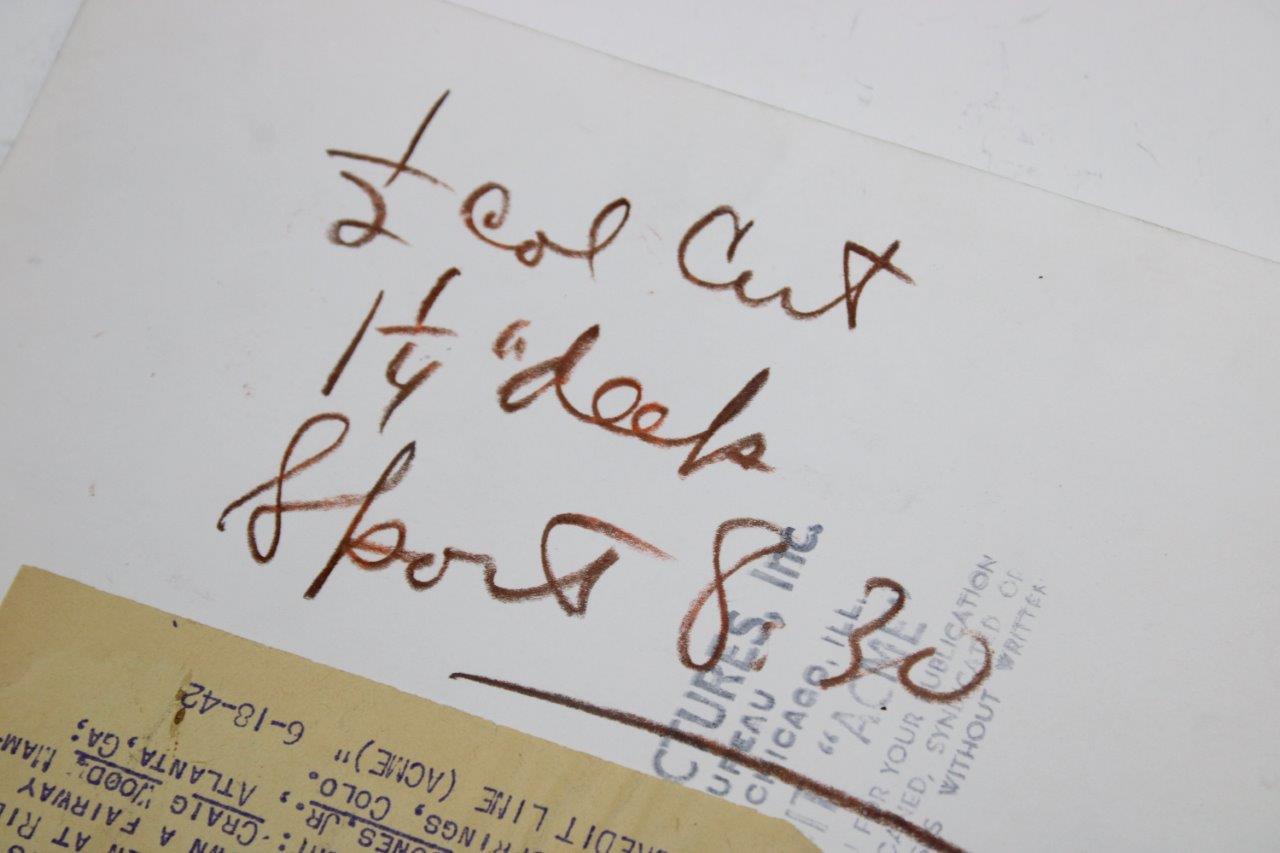 ½ Col Cut
1¼ "deep
Sport 8:30
CTURES, Inc.
UREAU
CHICAGO, ILL.
IT "ACME"
FOR YOUR PUBLICATION
SYNDICATED OR
WITHOUT WRITTEN
6-18-42
REDIT LINE (ACME)"
RINGS, COLO.
ONES, JR., ATLANTA, GA;
HT: CRAIG WOOD, MAM
WN A FAIRWAY
EN AT RI